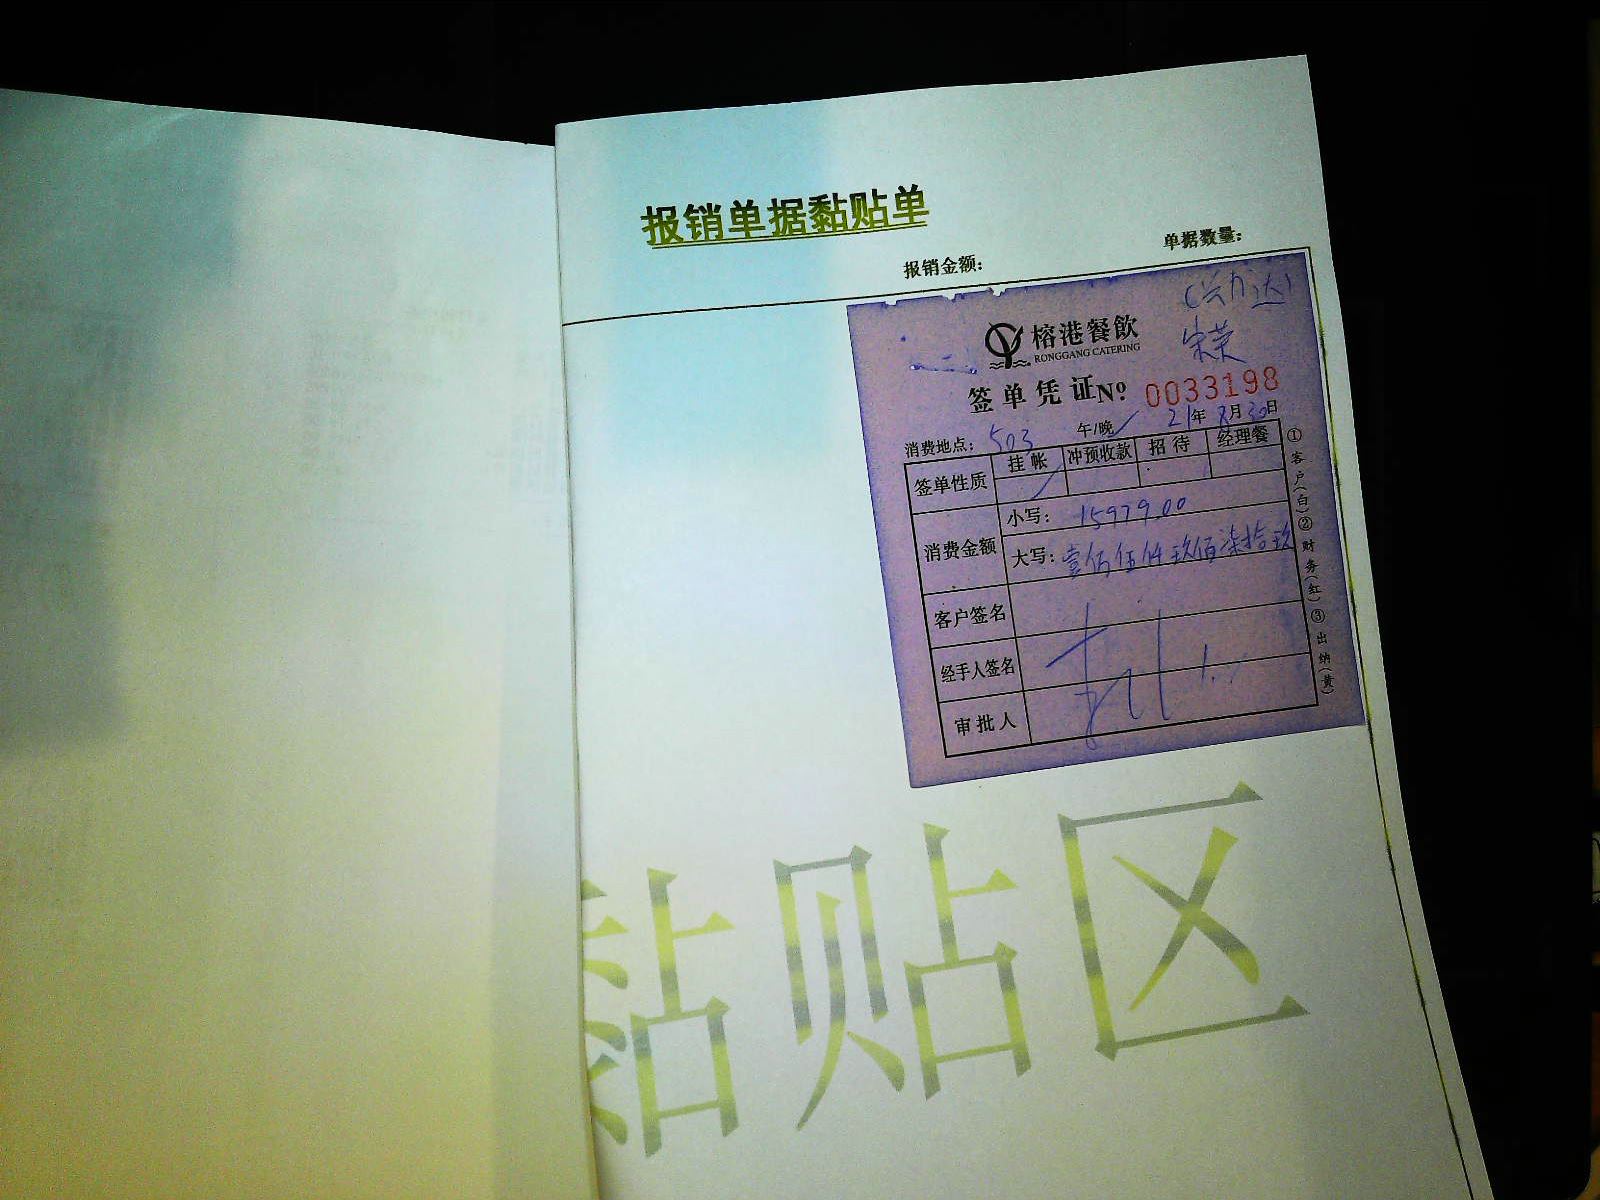 报销单据黏贴单
报销金额：
单据数量：
（兴力达）
宋荣
榕港餐飲
RONGGANG CATERING
签单凭证№ 0033198
消费地点：503 午/晚 21年8月30日
签单性质 挂帐 冲预收款 招待 经理餐
消费金额 小写：15979.00
大写：壹万伍仟玖佰柒拾玖
客户签名
经手人签名
审批人
①客户（白）②财务（红）③出纳（黄）
黏贴区